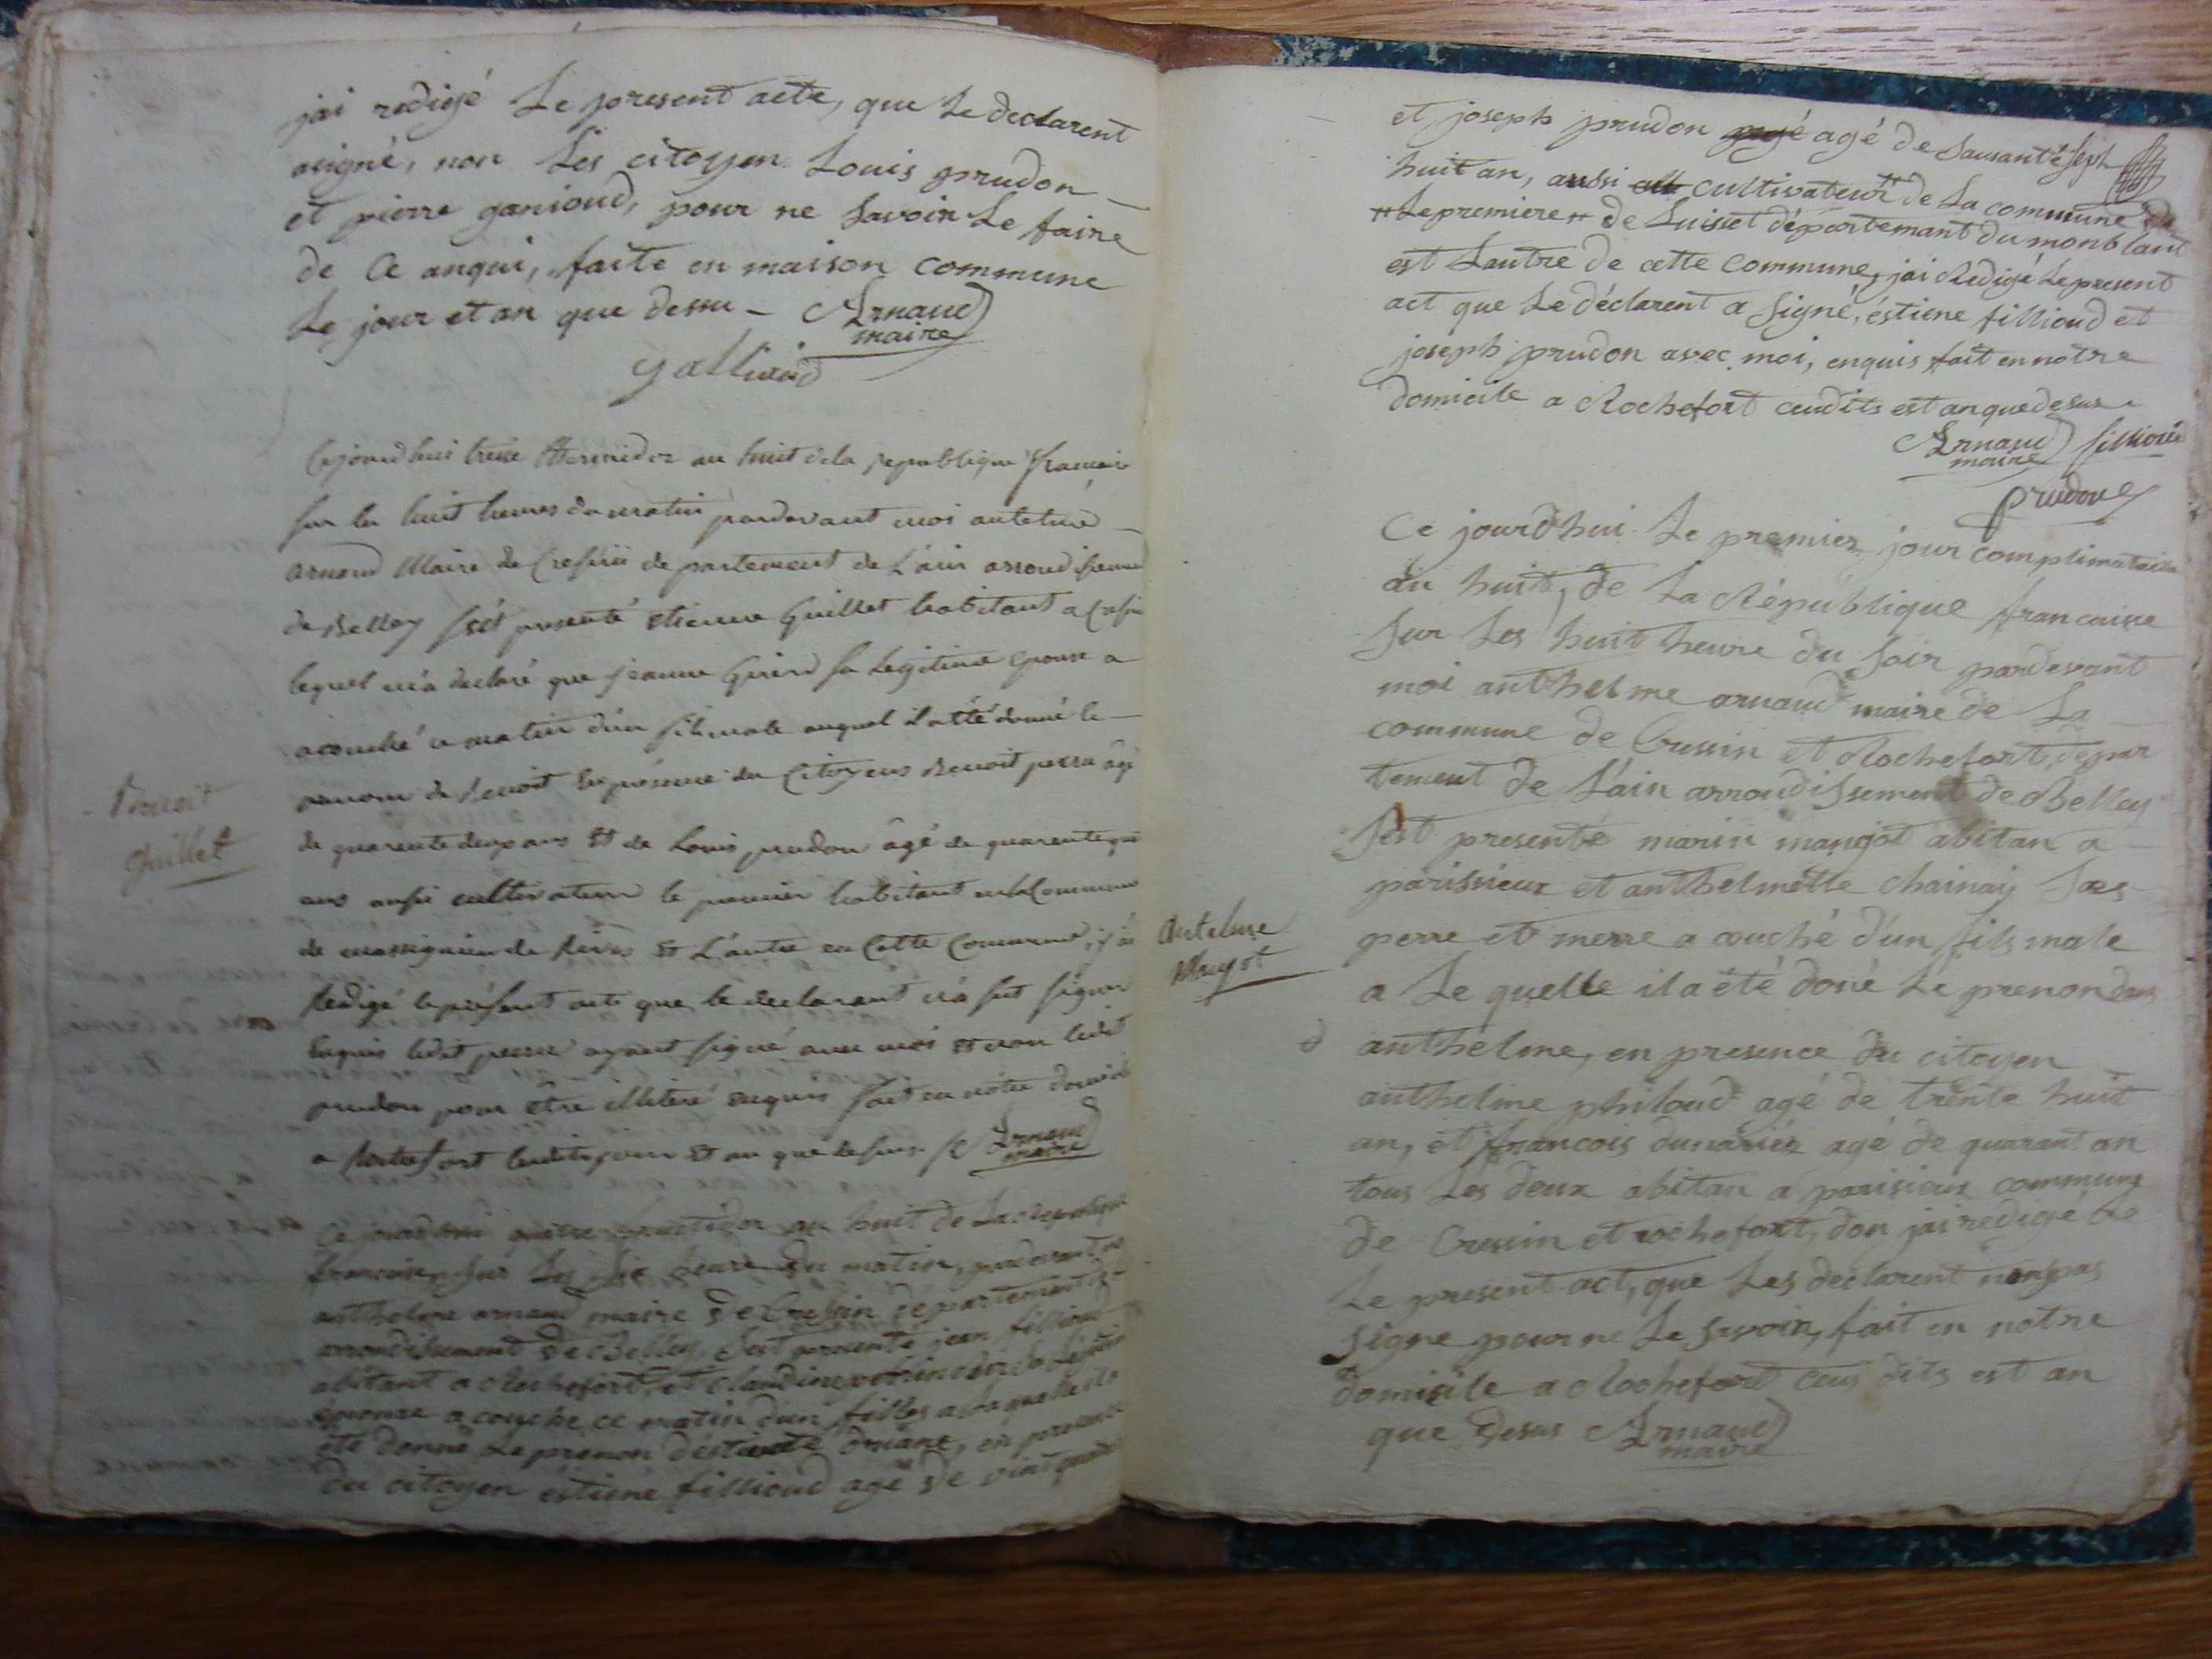 jai redigé Le present acte, que Le declarent
asigné, non Les citoyen Louis prudon
et pierre ganioud, pour ne Savoir Le faire
de Ce anqui, faite en maison commune
Le jour et an que dessu - Arnaud
maire
galliard
Cejourdhui treise thermidor an huit de la republique francaise
sur les huit heures du matin pardevant moi antelme
arnaud Maire de Cressin departement de L'ain arrondissement
de Belley s'est presenté etienne Guillet habitant a Cressin
lequel m'a declaré que jeanne Girerd sa legitime epouse a
acouché ce matin d'un fils male auquel il a été donné le
prenom de Benoit En présence du Citoyens Benoit perra âgé
de quarente deux ans Et de Louis prudon âgé de quarente
ans aussi cultivateur le premier habitant en la Commune
de massignieu de Rives Et L'autre en Cette Commune, j'ai
Redigé le présent acte que le declarant n'a sut signer
Enquis ledit perra ayant signé avec moi Et non ledit
prudon pour être illiteré enquis fait en notre domicile
a Rochefort lesdits jour Et an que dessus. Arnaud
maire
Benoit
Guillet
Ce jourdhui quatre fructidor an huit de La Republique
francaise, Sur Les Six heure du matin, pardevant moi
anthelme arnaud maire de Cressin departement
arrondissement de Belley, Sest presenté jean fillioud
abitant a Rochefort, et Claudine Sa Legitime
epouse a couche ce matin dun filles a Laquelle il a
été donné Le prenon destienete driane, en presence
du citoyen éstiene fillioud agé de vint quatre
et joseph prudon agé de Sausante Sept
huit an, aussi cultivateur de La commune de
Le premiere de Luisset département du mont blanc
est Lautre de cette Commune, jai Redigé Le present
act que Le déclarent a Signé, éstiene fillioud et
joseph prudon avec moi, enquis fait en notre
domicile a Rochefort ceudits est an que desus
Arnaud fillioud
maire
prudon
Ce jourdhui Le premier jour complimataire
an huit, de La République francaise
Sur Les huit heure du Soir pardevant
moi anthelme arnaud maire de La
commune de Cressin et Rochefort, depar
tement de L'ain arroudissement de Belley
Sest presenté marin mangot abitan a
parissieux et anthelmette chainay Ses
perre et merre a couché d'un fils male
a Le quelle il a été doné Le prenon dans
anthelme, en presence du citoyen
anthelme philoud agé de trente huit
an, et francois dunariér agé de quarant an
tous Les deux abitan a parisieux commune
de Cressin et rochefort, don jai redigé Le
Le present act, que Les declarent non pas
signe pour ne Le Savoir, fait en notre
domicile a Rochefort ceus dits est an
que desus Arnaud
maire
Antelme
Mugot